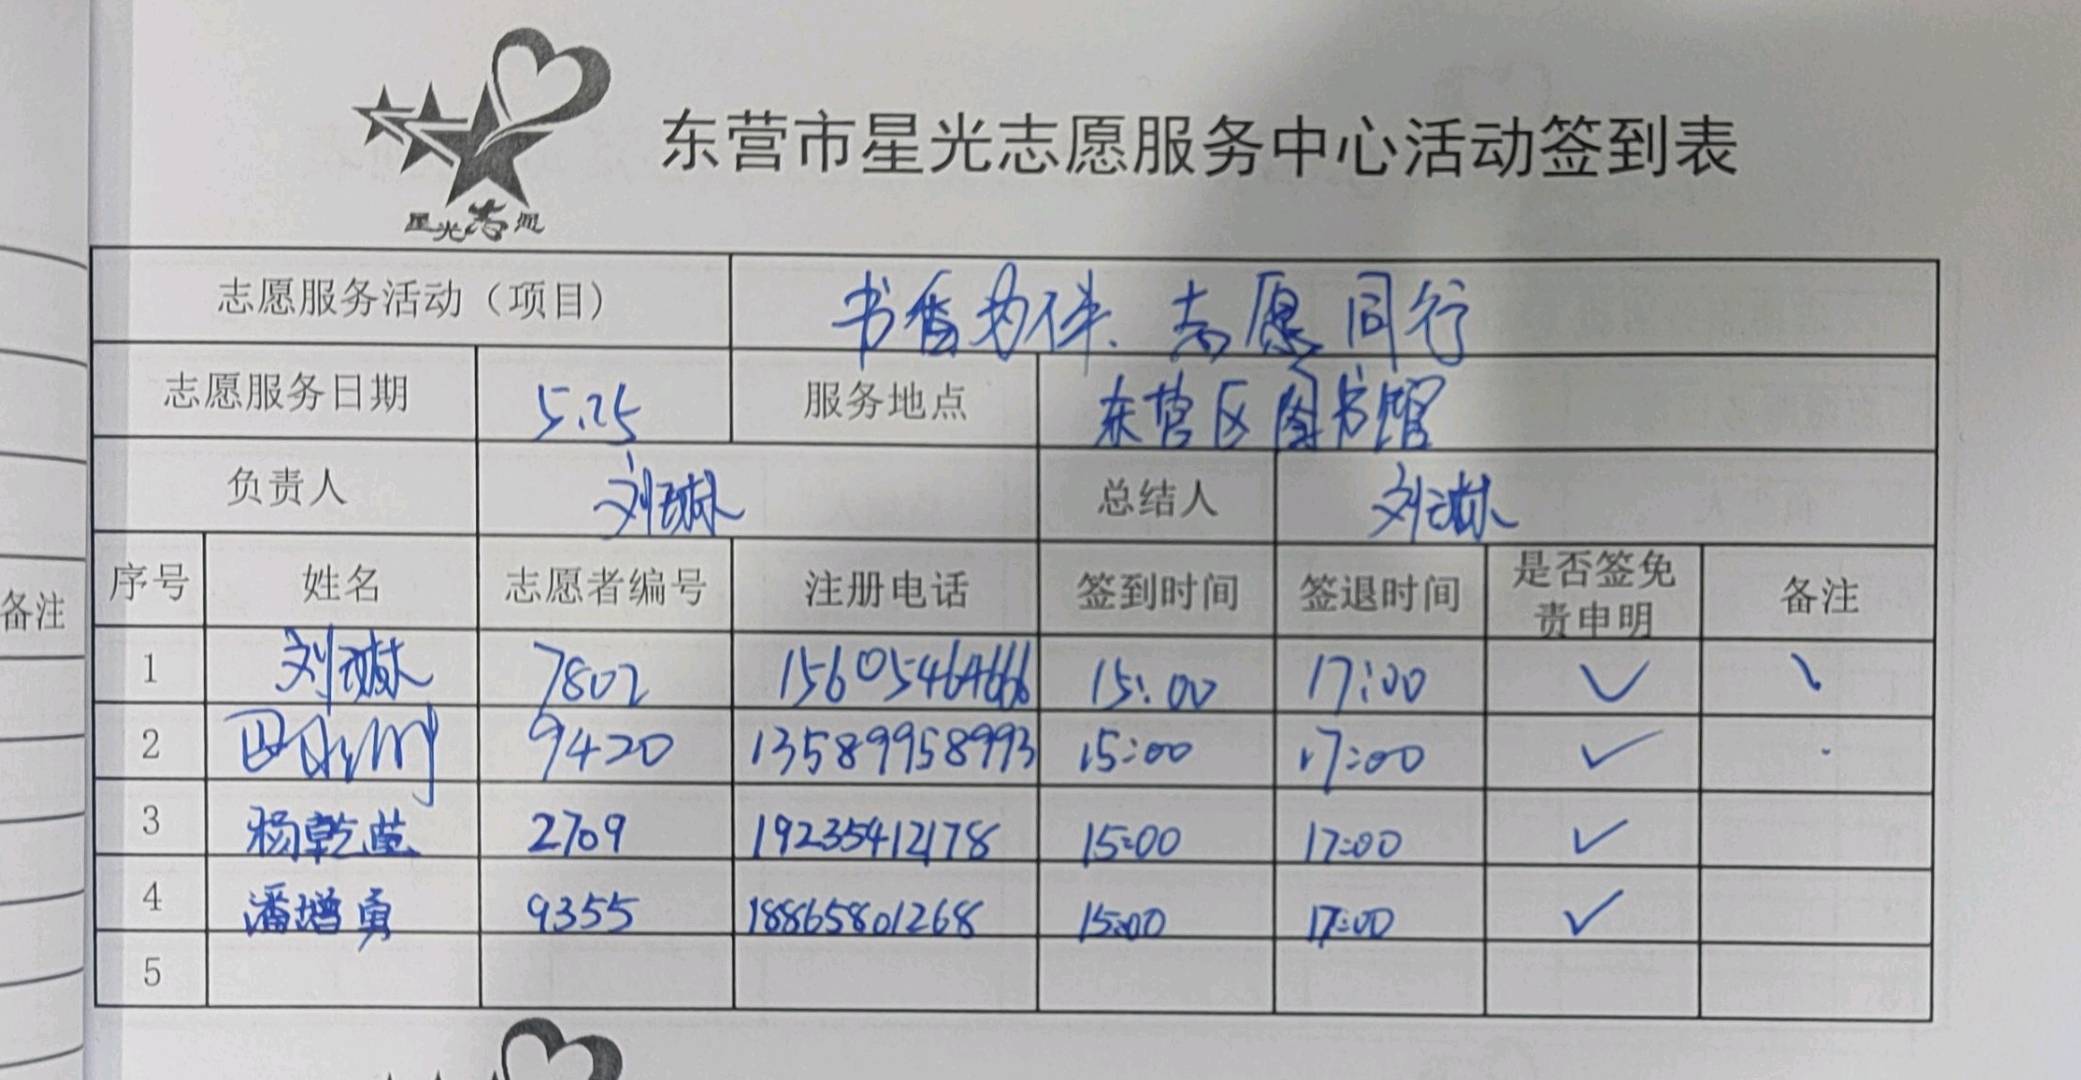 星光志愿
东营市星光志愿服务中心活动签到表
志愿服务活动（项目） 书香为伴、志愿同行
志愿服务日期 5.25 服务地点 东营区图书馆
负责人 刘琳 总结人 刘琳
序号 姓名 志愿者编号 注册电话 签到时间 签退时间 是否签免责申明 备注
备注
1 刘琳 7802 15:00 17:00 ✓
2 田 9420 13589958993 15:00 17:00 ✓
3 杨乾 2709 19235412178 15:00 17:00 ✓
4 潘增勇 9355 18865801268 15:00 17:00 ✓
5